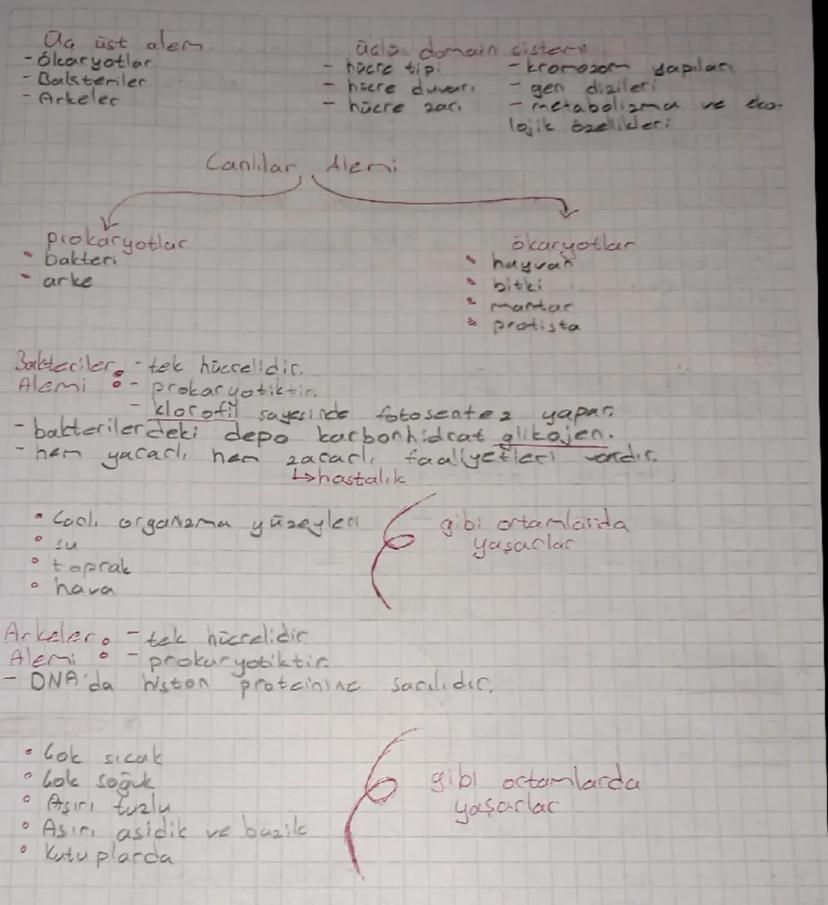 Üç üst alem
- Ökaryotlar
- Bakteriler
- Arkeler
üçlü domain sistemi
- hücre tipi
- hücre duvarı
- hücre zarı
- kromozom yapıları
- gen dizileri
- metabolizma ve eko-
lojik özellikleri
Canlılar Alemi
prokaryotlar
• bakteri
• arke
ökaryotlar
• hayvan
• bitki
• mantar
• protista
Bakteriler - tek hücrelidir.
Alemi : - prokaryotiktir.
- klorofil sayesinde fotosentez yapar.
- bakterilerdeki depo karbonhidrat glikojen.
- hem yararlı, hem zararlı faaliyetleri vardır.
↳ hastalık
• Canlı organizma yüzeyleri
• su
• toprak
• hava
gibi ortamlarda
yaşarlar
Arkeler - tek hücrelidir
Alemi : - prokaryotiktir.
- DNA'da histon proteinine sarılıdır.
• Çok sıcak
• Çok soğuk
• Aşırı tuzlu
• Aşırı asidik ve bazik
• Kutuplarda
gibi ortamlarda
yaşarlar